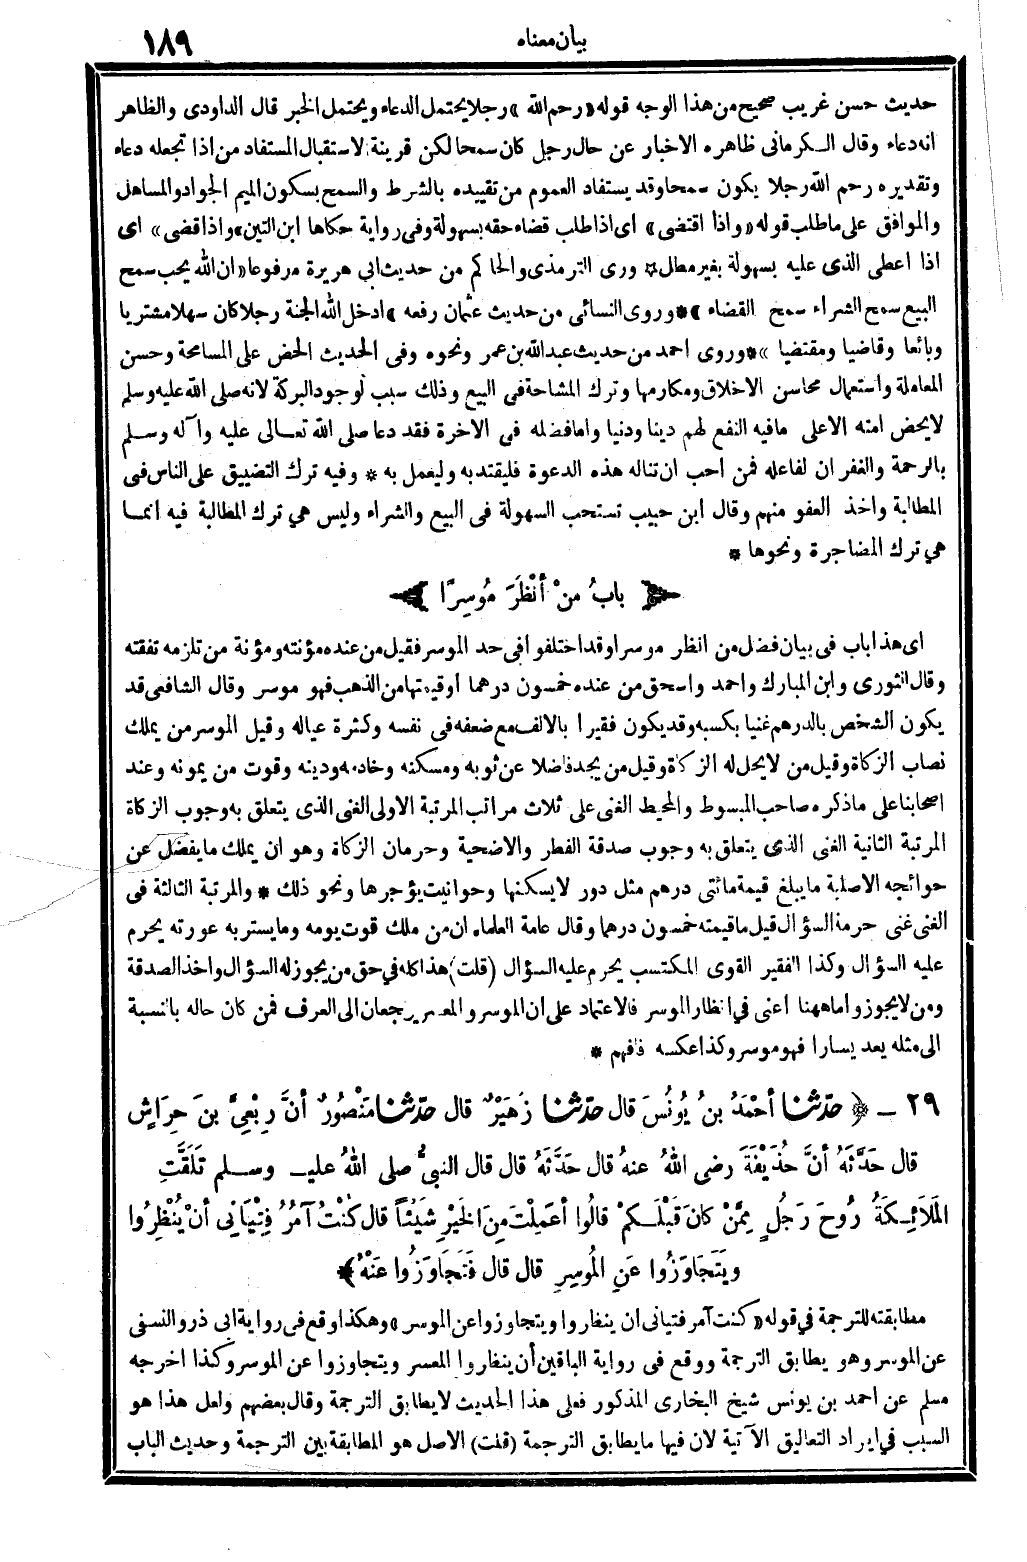 بيان معناه ١٨٩
حديث حسن غريب صحيح من هذا الوجه قوله «رحم الله» رجلا يحتمل الدعاء ويحتمل الخبر قال الداودى والظاهر
انه دعاء وقال الكرمانى ظاهره الاخبار عن حال رجل كان سمحا لكن قرينة الاستقبال المستفاد من اذا تجعله دعاء
وتقديره رحم الله رجلا يكون سمحا وقد يستفاد العموم من تقييده بالشرط والسمح بسكون الميم الجواد والمساهل
والموافق على ما طلب قوله «واذا اقتضى» اى اذا طلب قضاء حقه بسهولة وفى رواية حكاها ابن التين» واذا قضى» اى
اذا اعطى الذى عليه بسهولة بغير مطل * ورى الترمذى والحاكم من حديث ابى هريرة مرفوعا «ان الله يحب سمح
البيع سمح الشراء سمح القضاء» * وروى النسائى من حديث عثمان رفعه «ادخل الله الجنة رجلا كان سهلا مشتريا
وبائعا وقاضيا ومقتضيا» * وروى احمد من حديث عبد الله بن عمر ونحوه وفى الحديث الحض على المسامحة وحسن
المعاملة واستعمال محاسن الاخلاق ومكارمها وترك المشاحة فى البيع وذلك سبب لوجود البركة لانه صلى الله عليه وسلم
لا يحض امته الا على ما فيه النفع لهم دينا ودنيا واما فضله فى الآخرة فقد دعا صلى الله تعالى عليه وآله وسلم
بالرحمة والغفران لفاعله فمن احب ان تناله هذه الدعوة فليقتد به وليعمل به * وفيه ترك التضييق على الناس فى
المطالبة واخذ العفو منهم وقال ابن حبيب تستحب السهولة فى البيع والشراء وليس هي ترك المطالبة فيه انما
هي ترك المضاجرة ونحوها *
﴿ بابُ منْ أَنْظَرَ مُوسِرًا ﴾
اى هذا باب فى بيان فضل من انظر موسرا وقد اختلفوا فى حد الموسر فقيل من عنده مؤنته ومؤنة من تلزمه نفقته
وقال الثورى وابن المبارك واحمد واسحق من عنده خمسون درهما أو قيمتها من الذهب فهو موسر وقال الشافعى قد
يكون الشخص بالدرهم غنيا بكسبه وقد يكون فقيرا بالالف مع ضعفه فى نفسه وكثرة عياله وقيل الموسر من يملك
نصاب الزكاة وقيل من لا يحل له الزكاة وقيل من يجد فاضلا عن ثوبه ومسكنه وخادمه ودينه وقوت من يمونه وعند
اصحابنا على ما ذكره صاحب المبسوط والمحيط الغنى على ثلاث مراتب المرتبة الاولى الغنى الذى يتعلق به وجوب الزكاة
المرتبة الثانية الغنى الذى يتعلق به وجوب صدقة الفطر والاضحية وحرمان الزكاة وهو ان يملك ما يفضل عن
حوائجه الاصلية ما يبلغ قيمة مائتى درهم مثل دور لا يسكنها وحوانيت يؤجرها ونحو ذلك * والمرتبة الثالثة فى
الغنى غنى حرمة السؤال قيل ما قيمته خمسون درهما وقال عامة العلماء ان من ملك قوت يومه وما يستر به عورته يحرم
عليه السؤال وكذا الفقير القوى المكتسب يحرم عليه السؤال (قلت) هذا كله في حق من يجوز له السؤال واخذ الصدقة
ومن لا يجوز واما ههنا اعنى في انظار الموسر فالاعتماد على ان الموسر والمعسر يرجعان الى العرف فمن كان حاله بالنسبة
الى مثله يعد يسارا فهو موسر وكذا عكسه فافهم *
٢٩ - ﴿ حدّثنا أحْمَدُ بنُ يُونُسَ قال حدّثنا زهَيْرٌ قال حدّثنا مَنْصُورٌ أنَّ رِبْعِيَّ بنَ حِرَاشٍ
قال حَدَّثَهُ أنَّ حُذَيْفَةَ رضى اللهُ عنهُ قال حَدَّثَهُ قال قال النبىُّ صلى اللهُ عليه وسلم تَلَقَّتِ
المَلَائِكَةُ رُوحَ رَجُلٍ مِمَّنْ كانَ قَبْلَكمْ قالُوا أعَمِلْتَ مِنَ الخَيْرِ شَيْئاً قال كُنْتُ آمُرُ فِتْيَانِي أنْ يُنْظِرُوا
ويَتَجَاوَزُوا عَنِ المُوسِرِ قال قال فَتَجَاوَزُوا عَنْهُ ﴾ *
مطابقته للترجمة في قوله «كنت آمر فتيانى ان ينظروا ويتجاوزوا عن الموسر» وهكذا وقع فى رواية ابى ذر والنسفى
عن الموسر وهو يطابق الترجمة ووقع فى رواية الباقين أن ينظروا المعسر ويتجاوزوا عن الموسر وكذا اخرجه
مسلم عن احمد بن يونس شيخ البخارى المذكور فعلى هذا الحديث لا يطابق الترجمة وقال بعضهم ولعل هذا هو
السبب في ايراد التعاليق الآتية لان فيها ما يطابق الترجمة (قلت) الاصل هو المطابقة بين الترجمة وحديث الباب